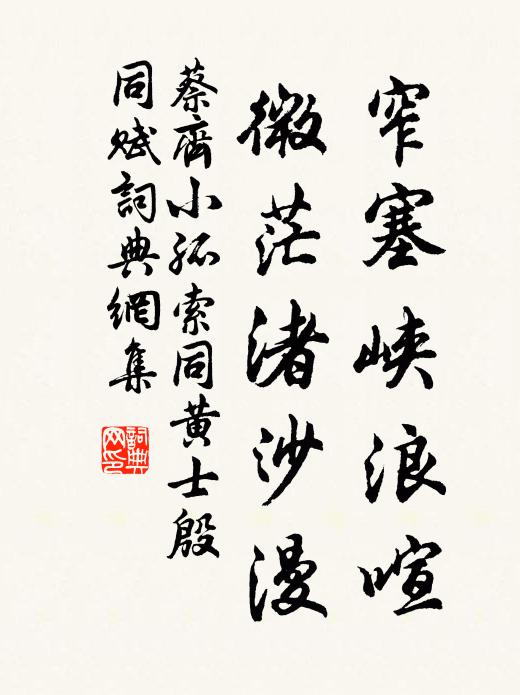 窄塞峽浪喧
微茫渚沙漫
蔡齊小孤索同黃士殷
同賦詞典網集
詞典
网印